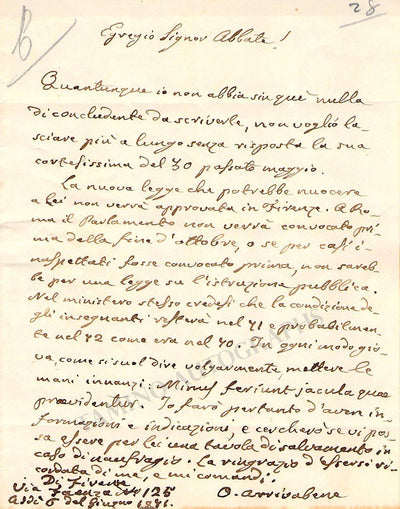 28
Egregio Signor Abbate!
Quantunque io non abbia sin quì nulla
di concludente da scriverle, non voglio la-
sciare più a lungo senza risposta la sua
cortesissima del 30 passato maggio.
La nuova legge che potrebbe nuocere
a Lei non verrà approvata in Firenze. A Ro-
ma il Parlamento non verrà convocato pri-
ma della fine d'ottobre, o se per casi i-
naspettati fosse convocato prima, non sareb-
be per una legge su l'istruzione pubblica.
Nel ministero stesso credesi che la condizione de-
gli insegnanti resterà nel 71 e probabilmen-
te nel 72 come era nel 70. In ogni modo gio-
va, come si suol dire volgarmente mettere le
mani innanzi: Minus feriunt jacula quae
praevidentur. Io farò pertanto d'aver in-
formazioni e indicazioni, e cercherò se vi pos-
sa essere per lei una tavola di salvamento in
caso di naufragio. La ringrazio d'essersi ri-
cordata di me, e mi comandi.
Di Firenze
Via Faenza No 125
Addì 6 del Giugno 1871.
O. Arrivabene
TAMINO AUTOGRAPHS